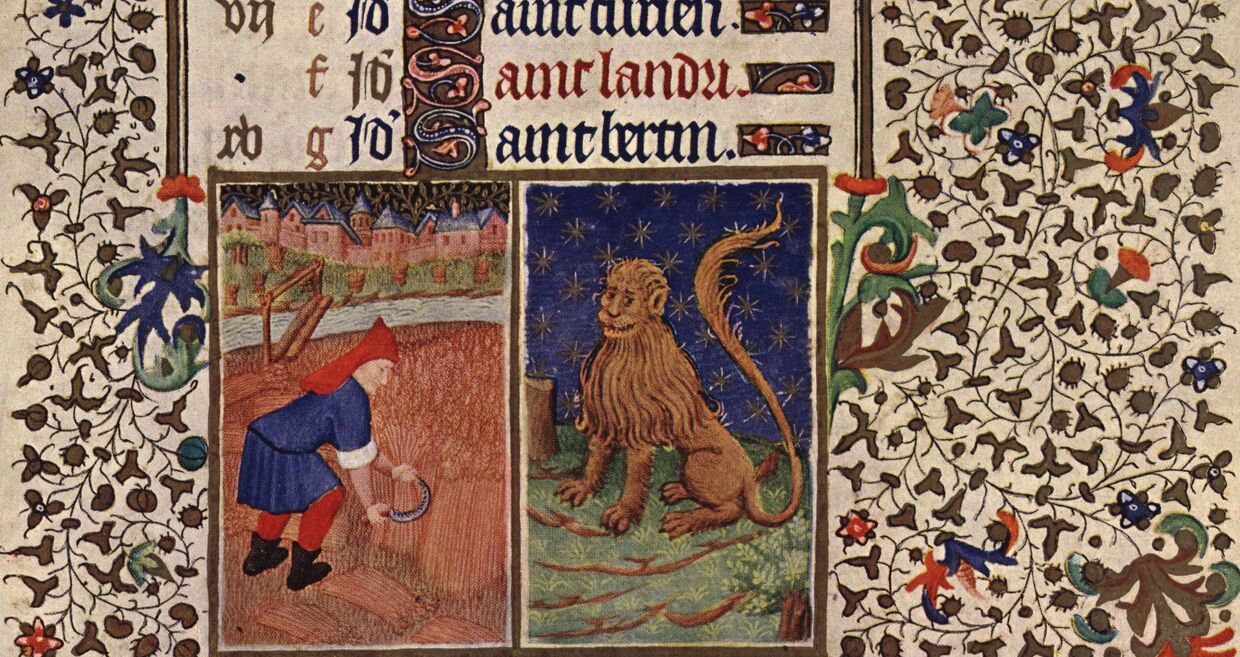 vii e Id Saint turien.
f Id Saint landri.
xv g Id' Saint bertin.